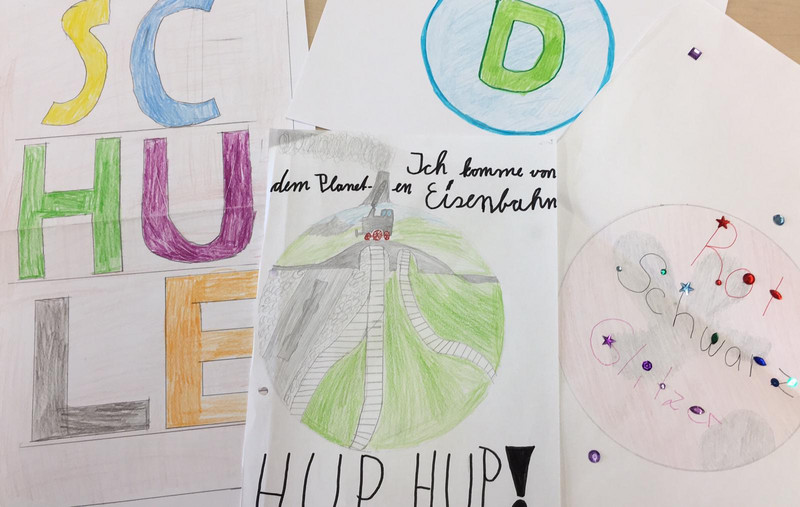 SC
HU
LE
D
Ich komme von
dem Planet-en Eisenbahn
HUP HUP!
Rot
Schwarz
Glitzer